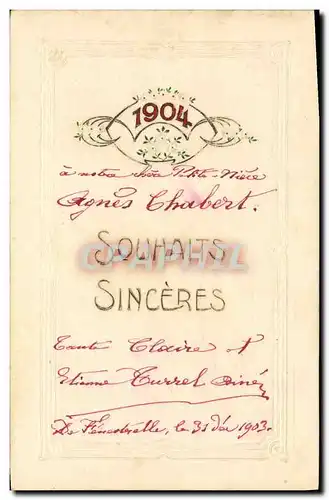 1904
à notre chère Petite-Nièce
Agnès Chabert.
SOUHAITS
CAPHIL
SINCÈRES
Tante Claire et
Etienne Turrel Ainé
De Fénestrelle, le 31 déc 1903.